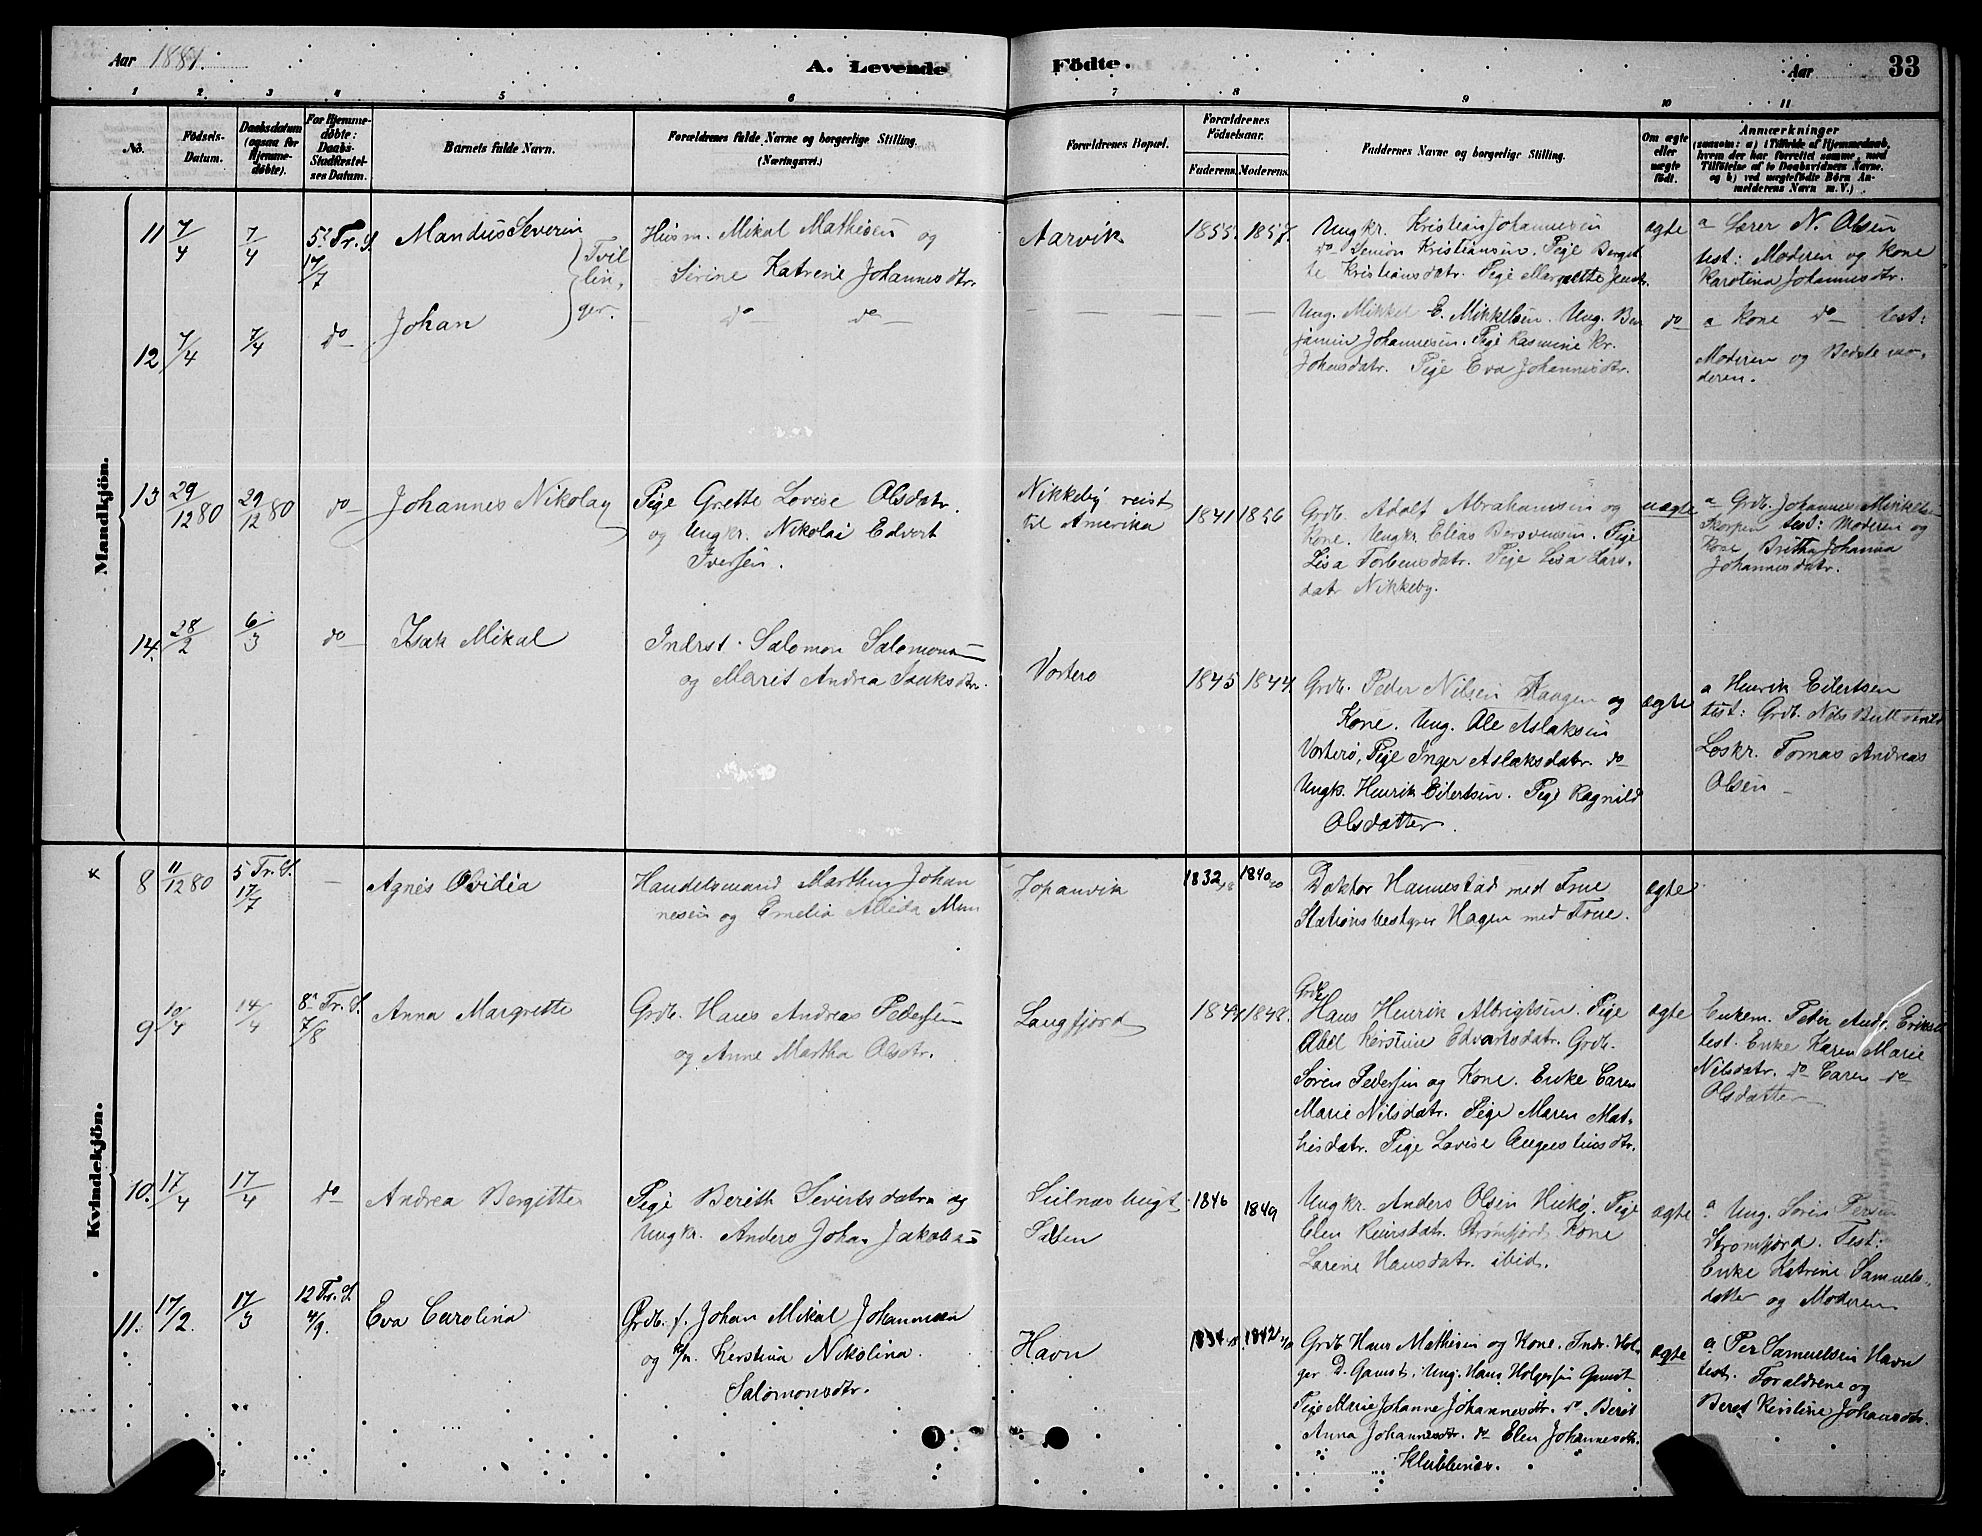 Aar 1881.
A. Levende Födte.
Aar 33
1 2 3 4 5 6 7 8 9 10 11
No.
Födsels-Datum.
Daabsdatum (ogsaa for Hjemme-döbte).
For Hjemme-döbte: Daabs-Stadfæstel-ses Datum.
Barnets fulde Navn.
Forældrenes fulde Navne og borgerlige Stilling. (Næringsvei.)
Forældrenes Bopæl.
Forældrenes Födselsaar.
Faderens. Moderens.
Faddernes Navne og borgerlige Stilling.
Om ægte eller uægte födt.
Anmærkninger
(saasom: a) i Tilfælde af Hjemmedaab, hvem der har forrettet samme, med Tilföielse af to Daabsvidners Navne, og b) ved uægtefödte Börn Anmelderens Navn m.V.)
Mandkjön.
11 7/4 7/4 5. Tr. S. 17/7
Mandus Severin
Tvillinger.
Husm. Mikal Mathisen og
Serine Katrene Johannesdtr.
Aarvik
1855. 1857.
Ungkr. Kristian Johannesen
do Simon Kristiansen. Pige Bergit
te Kristiansdatr. Pige Maranette Jensdtr.
ægte
a Lærer N. Olsen
test: Moderen og Kone
Karolina Johannesdtr.
12 7/4 7/4 do
Johan
do do
Ung. Mikkel E. Mikkelsen. Ung. Ben
jamin Johannesen. Pige Rasmine Kr.
Johansdatr. Pige Eva Johannesdtr.
do
a Kone do test:
Moderen og Bedstemo-
deren.
13 29/12 80 29/12 80 do
Johannes Nikolay
Pige Grette Lovise Olsdatr.
og Ungkr. Nikolai Edvert
Iversen.
Nikkeby reist
til Amerika
1841 1856
Grdb. Adolf Abrahamsen og
Kone. Ungkr. Elias Bersvensen. Pige
Lisa Torbensdatr. Pige Lisa Lars-
datr Nikkeby.
uægte
a Grdb. Johannes Mikkelsen
Skorpen test: Moderen og
Kone Britha Johanna
Johannesdatr.
14. 28/2 6/3 do
Isak Mikal
Indrst. Salomon Salomons
og Marit Andrea Isaksdtr.
Vorterø
1845 1844
Grdb. Peder Nilsen Kaagen og
Kone. Ung. Ole Aslaksen
Vorterø, Pige Inger Aslaksdatr. do
Ungk. Henrik Eilertsen. Pige Ragnild
Olsdatter.
ægte
a Henrik Eilertsen
test: Grdb. Nils
Løskr. Tomas Andreas
Olsen
Kvindekjön.
x 8 11/12 80 5 Tr. S. 17/7
Agnes Ovidia
Handelsmand Marthin Johan
nesen og Emelia Alleda
Jopanvik
1832 1840
Doktor Hannestad med Frue
Stationsbestyrer Hagen med Frue.
ægte
9 10/4 14/4 8. Tr. S. 7/8
Anna Margrette
Grdb. Hans Andreas Pedersen
og Anne Martha Olsdtr.
Langfjord
1844 1848.
Grdb.
Hans Henrik Albrigtsen. Pige
Abel Kerstine Edvartsdatr. Grdb.
Søren Pedersen og Kone. Enke Caren
Marie Nilsdatr. Pige Maren Mat-
hisdatr. Pige Lovise Augustinusdtr.
ægte
Enkem. Peder Andr. Eriksen
test. Enke Karen Marie
Nilsdatr. do Caren do
Olsdatter
10. 17/4 17/4 do
Andrea Bergitte
Pige Berith Sivertsdatr og
Ungkr. Anders Johan Jakobs
Seilnæsbugt
1846 1849
Ungkr. Anders Olsen Hukø. Pige
Elen Reiersdatr. Strømfjord. Kone
Larine Hansdatr. ibid.
ægte
a Ung. Søren Persen
Strømfjord. Test:
Enke Katrine Samuels-
datter og Moderen
11. 17/2. 17/3 12 Tr. S. 4/9.
Eva Carolina
Grdb. f. Johan Mikal Johannesen
og k/n. Kerstina Nikolina
Salomonsdtr.
Havn
1834 1842
Grdb Hans Mathisen og Kone. Indr. Hol-
ger D. Gamst. Ung. Hans Holgersen Gamst
Pige Marie Johanne Johannesdtr. do. Berit
Anna Johannesdtr. do Elen Johannesdtr.
Klubbenes.
ægte
a. Per Samuelsen Havn
test. Forældrene og
Beret Kirstine Johansdtr.